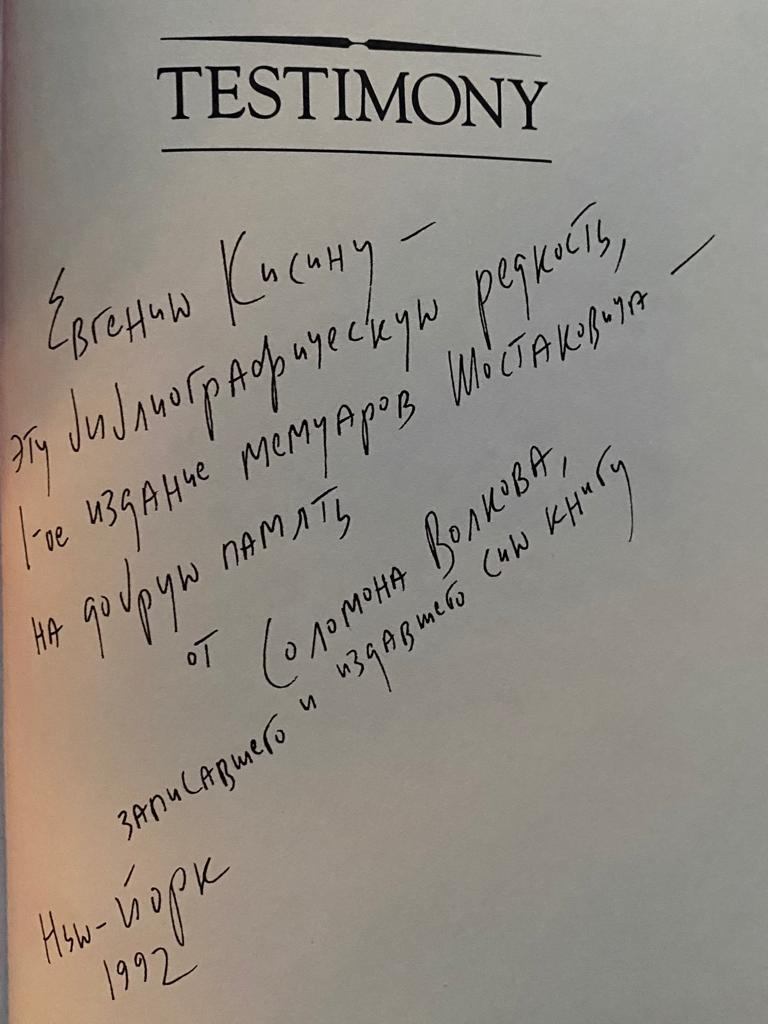 TESTIMONY
Евгению Кисину —
эту библиографическую редкость,
1-ое издание мемуаров Шостаковича —
на добрую память
от Соломона Волкова,
записавшего и издавшего сию книгу
Нью-Йорк
1992